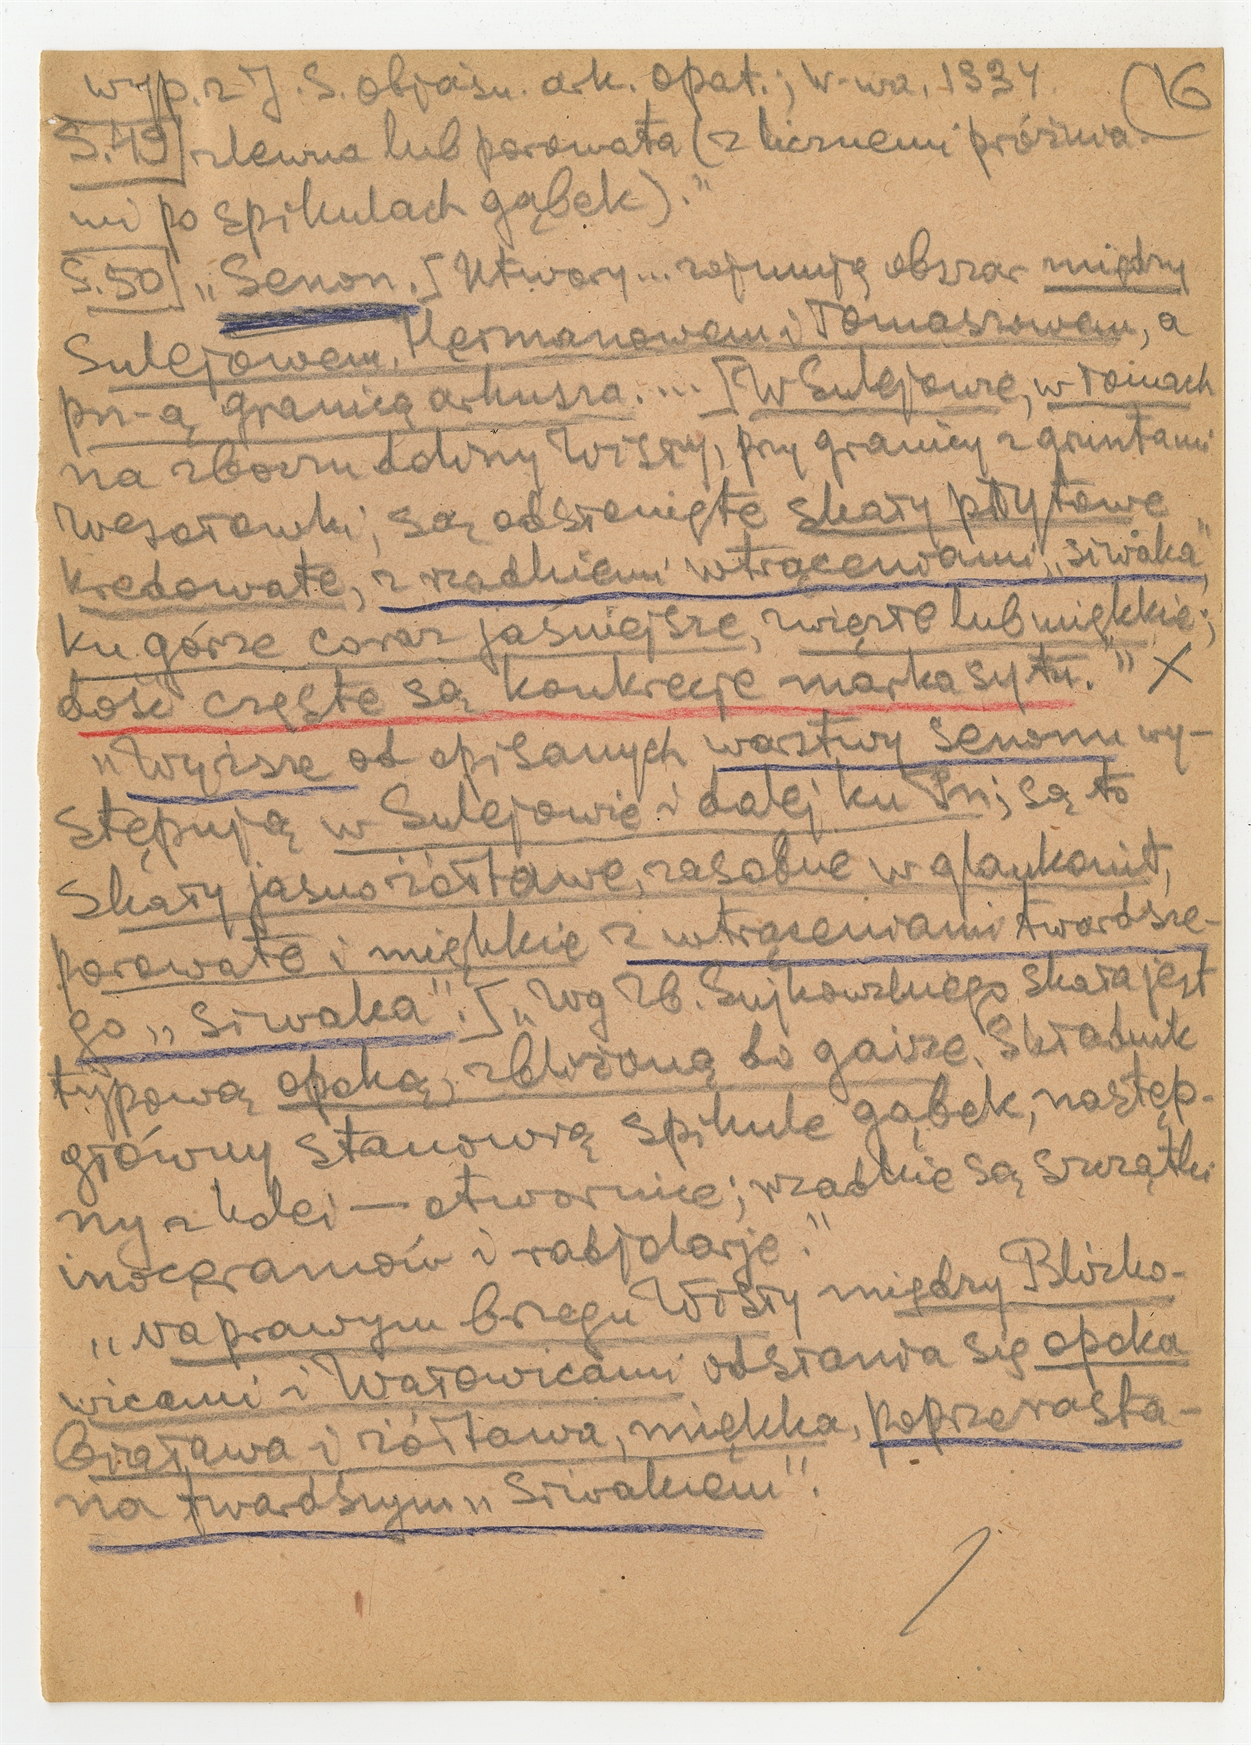 wyp. z J. S. objaśn. ark. opat.; W-wa, 1934. (16
S. 49] zlewna lub porowata (z licznemi próżnia-
mi po spikulach gąbek)."
S. 50] „Senon. [Utwory... zajmują obszar między
Sulejowem, Hermanowem i Tomaszowem, a
pn-ą granicą arkusza. ... [W Sulejowie, w łomach
na zboczu doliny Wisły, przy granicy z gruntami
Wesołówki, są odsłonięte skały płytowe
kredowate, z rzadkiemi wtrąceniami „siwaka",
ku górze coraz jaśniejsze, zwięzłe lub miękkie;
dość częste są konkrecje markasytu." X
„Wyższe od opisanych warstwy senonu wy-
stępują w Sulejowie i dalej ku Pn; są to
skały jasno żółtawe, zasobne w glaukonit,
porowate i miękkie z wtrąceniami twardsze-
go „siwaka". [„Wg Zb. Sujkowskiego skała jest
typową opoką, zbliżoną do gaize. Składnik
główny stanowią spikule gąbek, następ-
ny z kolei — otwornice; rzadkie są szczątki
inoceramów i radjolarje."
„Na prawym brzegu Wisły między Bliszko-
wicami i Wałowicami odsłania się opoka
biaława i żółtawa, miękka, poprzerasta-
na twardszym „siwakiem".